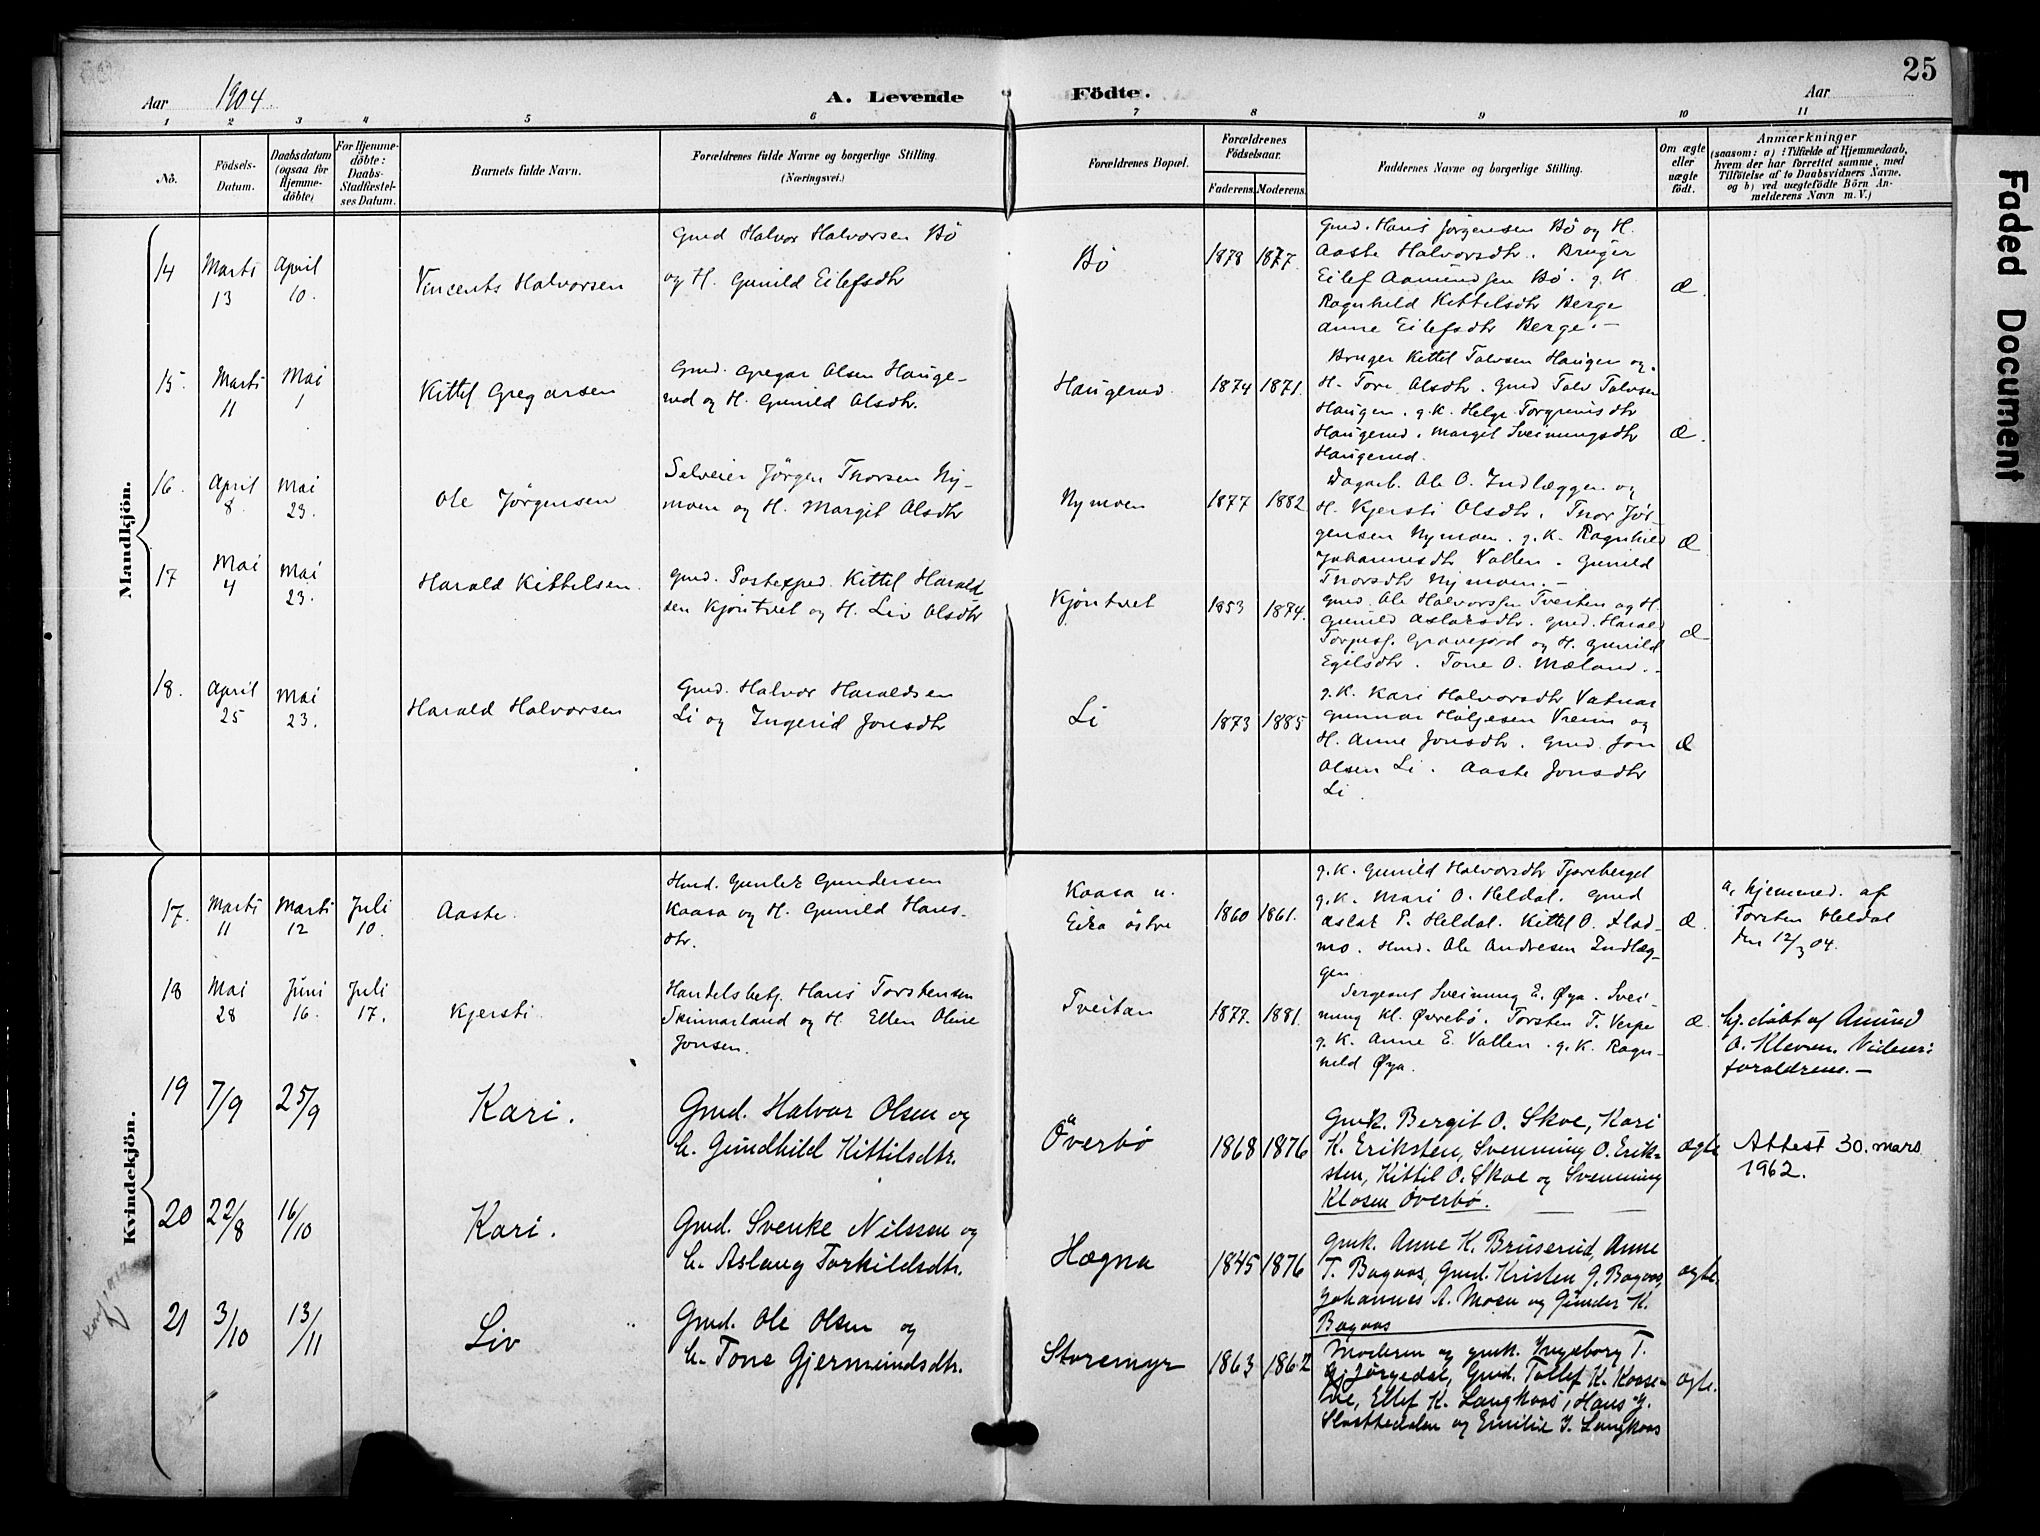 25
Aar 1904
A. Levende Födte.
Aar
1 2 3 4 5 6 7 8 9 10 11
No.
Födsels-
Datum.
Daabsdatum
(ogsaa for
Hjemme-
döbte)
For Hjemme-
döbte:
Daabs-
Stadfæstel-
ses Datum.
Barnets fulde Navn.
Forældrenes fulde Navne og borgerlige Stilling.
(Næringsvei.)
Forældrenes Bopæl.
Forældrenes
Födselsaar.
Faderens. Moderens.
Faddernes Navne og borgerlige Stilling.
Om ægte
eller
uægte
født.
Anmærkninger
(saasom: a) i Tilfælde af Hjemmedaab,
hvem der har forrettet samme, med
Tilföielse af to Daabsvidners Navne,
og b) ved uægtefödte Börn An-
melderens Navn m. V.)
Mandkjön.
14
Marts
13
April
10.
Vincents Halvorsen
Gmd Halvor Halvorsen Bö
og H. Gunild Eilefsdtr
Bö
1878 1877.
Gmd. Hans Jörgensen Bö og H.
Aaste Halvorsdtr. Bruger
Eilef Aamundsen Bö. g. K
Ragnhild Kittilsdtr Berge
Anne Eilefsdtr Berge.-
Æ.
15.
Marts
11
Mai
1
Kittil Gregarsen
Gmd. Gregar Olsen Hauge-
rud og H. Gunild Olsdtr.
Haugerud.
1874 1871.
Bruger Kittil Talvsen Haugen og
H. Tore Olsdtr. Gmd Talv Talvsen
Haugen. g.K. Helge Torgrimsdtr
Haugerud. Margit Sveinungsdtr
Haugerud.
Æ.
16.
April
8.
Mai
23.
Ole Jörgensen
Selveier Jörgen Thorsen Ny-
moen og H. Margit Olsdtr
Nymoen
1877 1882
Dagarb. Ole O. Indlæggen og
H. Kjersti Olsdtr. Thor Jör-
gensen Nymoen. g. K. Ragnhild
Johannesdtr Vallen. Gunild
Thorsdtr Nymoen.-
Æ
17
Mai
4
Mai
23.
Harald Kittelsen.
Gmd. Postexped. Kittil Harald
sen Kjöntvet og H. Liv Olsdtr
Kjöntvet
1853 1874.
Gmd. Ole Halvorssen Tveiten og H.
Gunild Aslaksdtr. Gmd. Harald
Torgusf. Gravejord og H. Gunild
Egilsdtr. Tone O. Mæland.-
Æ
18.
April
25
Mai
23.
Harald Halvorsen
Gmd. Halvor Haraldsen
Li og Ingerid Jonsdtr
Li
1873 1885
g. K. Kari Halvorsdtr Vatnar
Gunnar Holgesen Vreim og
H. Anne Jonsdtr. Gmd. Jon
Olsen Li. Aaste Jonsdtr
Li.
Æ
Kvindekjön.
17.
Marts
11
Marts
12
Juli
10.
Aaste.
Hmd. Gunlek Gundersen
Kaasa og H. Gunild Hans-
dtr.
Kaasa u.
Eika östre
1860 1861.
g. K. Gunild Halvorsdtr Tjoreberget
g. K. Mari O. Heldal. Gmd
Aslak P. Heldal. Kittil O. Flad-
mo. Hmd. Ole Andresen Indlæg-
gen
Æ.
a, hjemmed. af
Torsten Heldal
den 12/3 04.
18
Mai
28
Juni
16.
Juli
17.
Kjersti
Handelsbetj. Hans Torstensen
Skinnarland og H. Ellen Oline
Jonsen.
Tveitan
1877. 1881.
Sergeant Sveinung E. Øya. Svei-
nung Kl. Øvrebö. Torsten T. Verpe
g. K. Anne E. Vallen. g. K. Ragn-
hild Øya.
Æ.
hj. döbt af Amund
O. Kleven. Vidner:
forældrene.-
19
7/9
25/9
Kari.
Gmd. Halvor Olsen og
h. Gundhild Kittilsdtr.
Överbö
1868 1876
Gmk. Bergit O. Skoe, Kari
K. Eriksten, Svenning O. Erik-
sten, Kittil O. Skoe og Svenning
Klasen Överbö.
ægte
Attest 30. mars
1962.
20
22/8
16/10
Kari.
Gmd. Svenke Nilssen og
h. Aslaug Torkildsdtr.
Hægna
1845 1876
gmk. Anne K. Bruserud, Anne
T. Bagaas, Gmd. Kristen G. Bagaas,
Johannes A. Moen og Gunder K.
Bagaas
ægte.
21
3/10
13/11
Liv
Gmd. Ole Olsen og
h. Tone Gjermundsdtr.
Storemyr
1863 1862
Moderen og gmk. Ingeborg T.
Gjörgedal, Gmd. Tollef K. Kaase-
Ellef K. Langkaas, Hans G.
Slaattedalen og Emilie J. Langkaas
ægte.
Faded Document